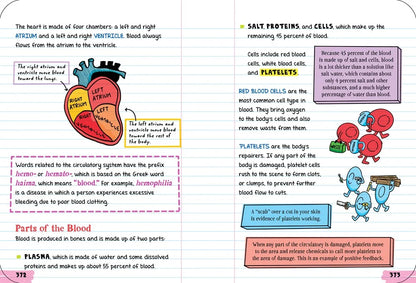 The heart is made of four chambers: a left and right
ATRIUM and a left and right VENTRICLE. Blood always
flows from the atrium to the ventricle.
The right atrium and
ventricle move blood
toward the lungs.
RIGHT
ATRIUM
LEFT
ATRIUM
RIGHT
VENTRICLE
LEFT
VENTRICLE
The left atrium and
ventricle move blood
toward the rest of
the body.
Words related to the circulatory system have the prefix
hemo- or hemato-, which is based on the Greek word
haima, which means "blood." For example, hemophilia
is a disease in which a person experiences excessive
bleeding due to poor blood clotting.
Parts of the Blood
Blood is produced in bones and is made up of two parts:
PLASMA, which is made of water and some dissolved
proteins and makes up about 55 percent of blood.
372
SALT, PROTEINS, and CELLS, which make up the
remaining 45 percent of blood.
Cells include red blood
cells, white blood cells,
and PLATELETS.
Because 45 percent of the blood
is made up of salt and cells, blood
is a lot thicker than a solution like
salt water, which contains about
only 4 percent salt and other
substances, and a much higher
percentage of water than blood.
RED BLOOD CELLS are the
most common cell type in
blood. They bring oxygen
to the body's cells and also
remove waste from them.
PLATELETS are the body's
repairers. If any part of the
body is damaged, platelet cells
rush to the scene to form clots,
or clumps, to prevent further
blood flow to cuts.
A "scab" over a cut in your skin
is evidence of platelets working.
When any part of the circulatory is damaged, platelets move
to the area and release chemicals to call more platelets to
the area of damage. This is an example of positive feedback.
373